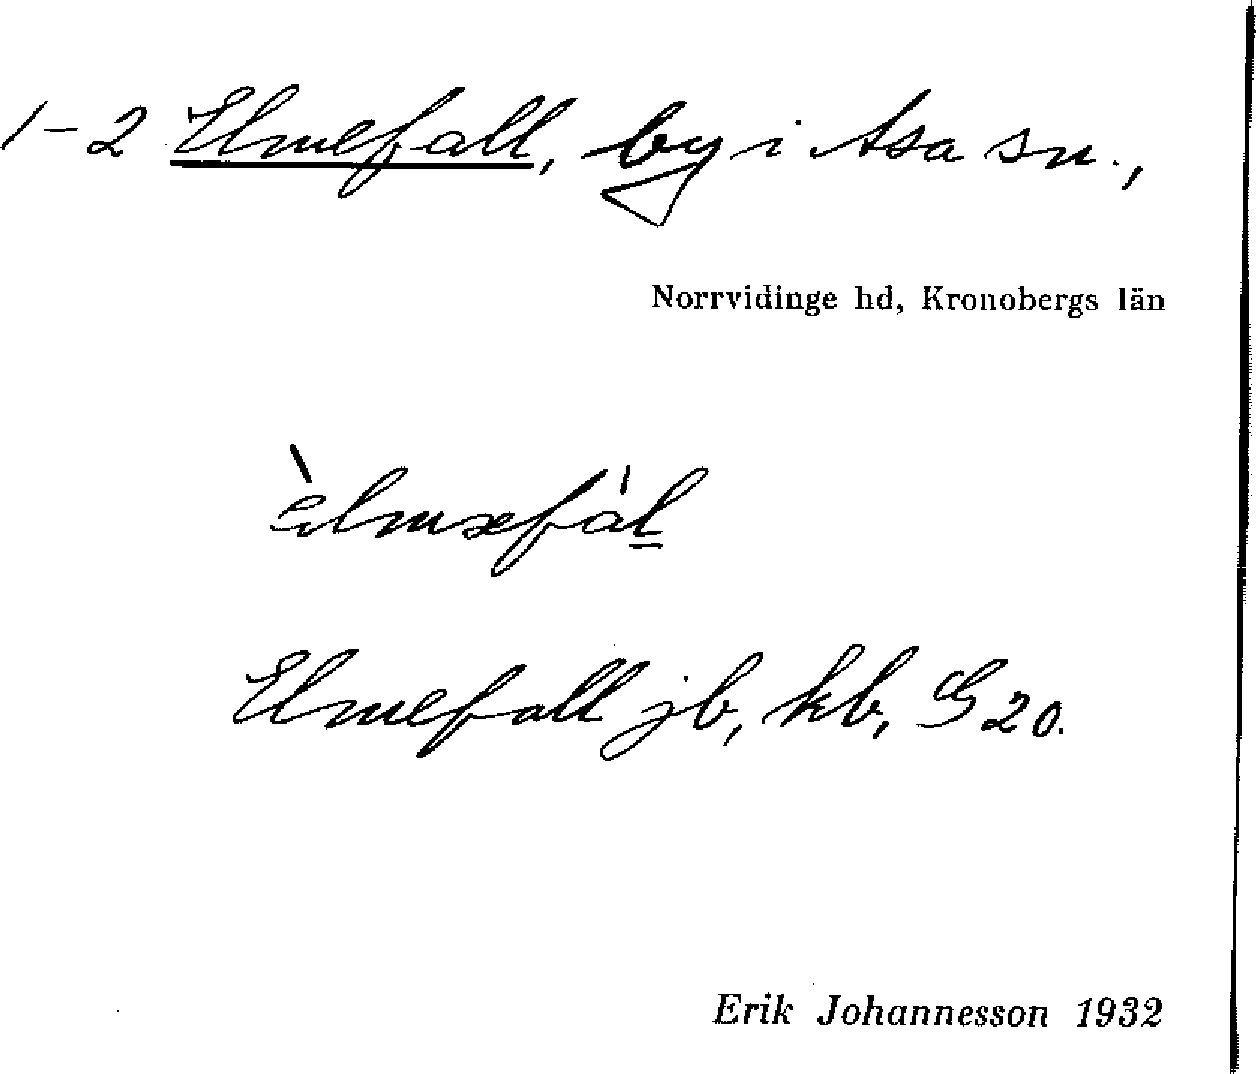 1-2 Elmefall, by i Asa sn.,
Norrvidinge hd, Kronobergs län
èlmefál
Elmefall jb, kb, G 20.
Erik Johannesson 1932